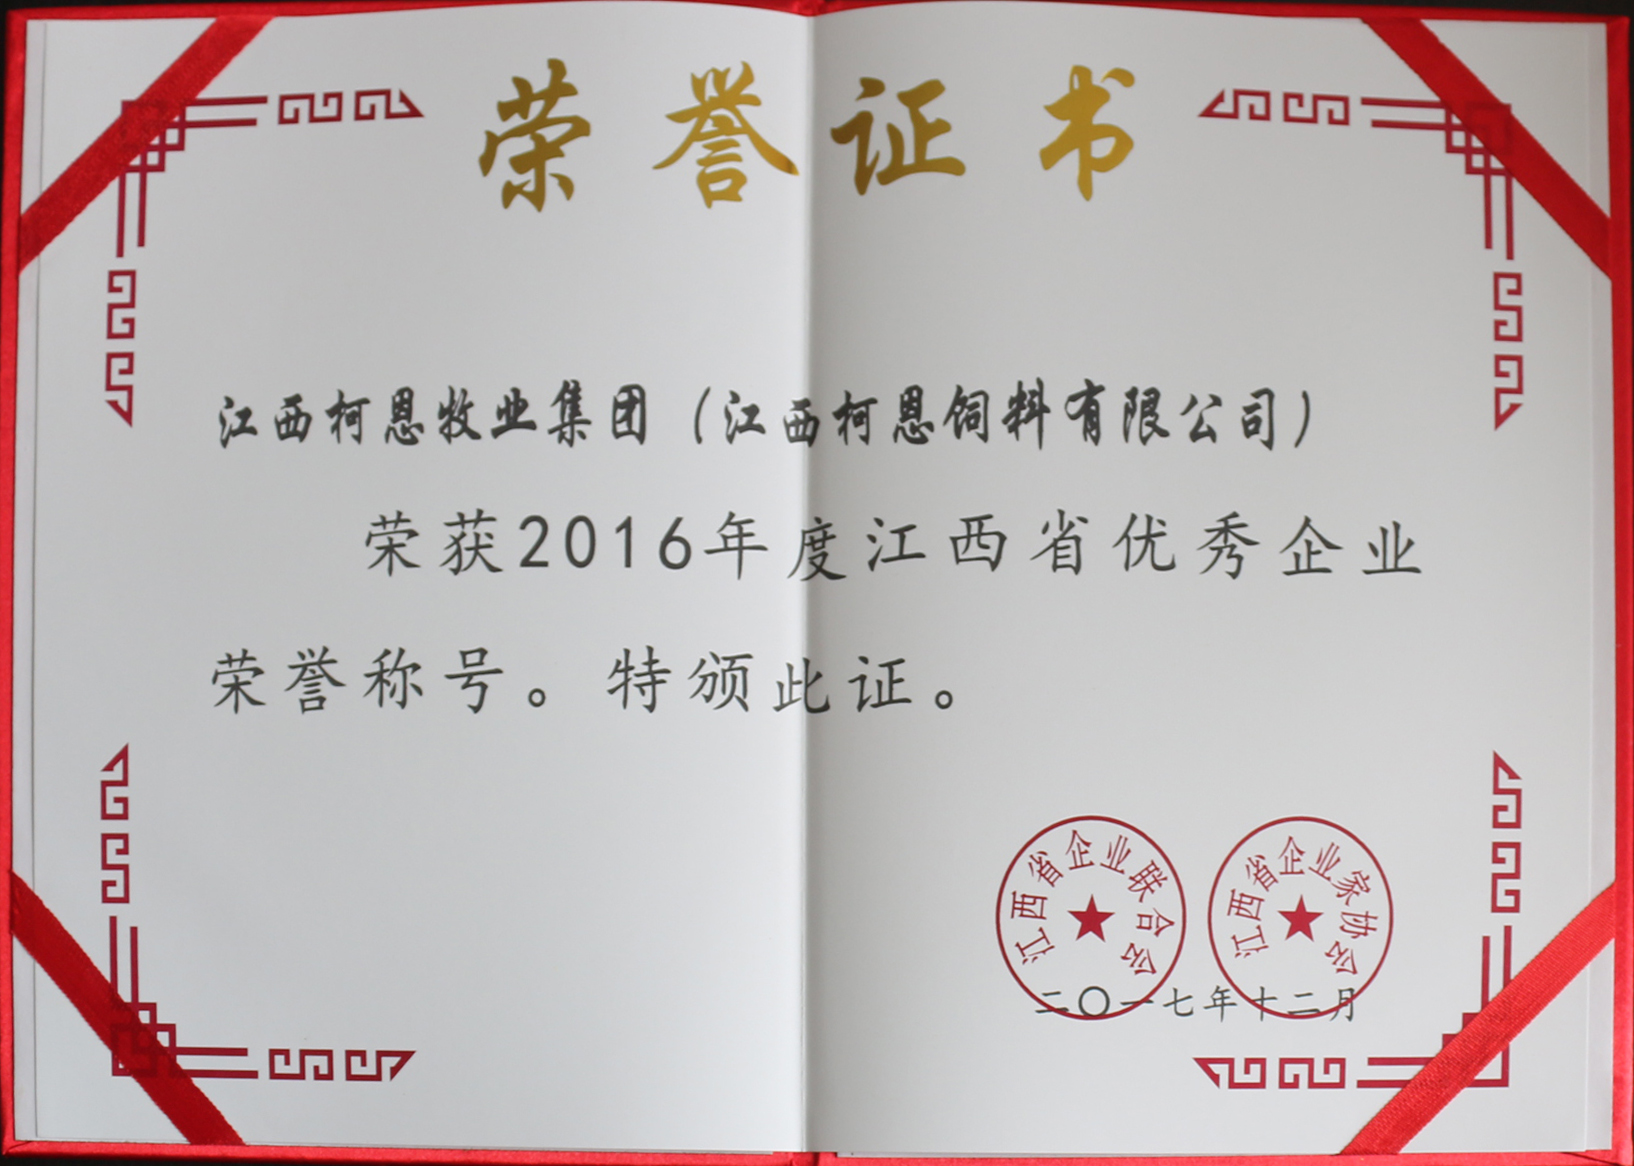 荣誉证书
江西柯恩牧业集团（江西柯恩饲料有限公司）
荣获2016年度江西省优秀企业
荣誉称号。特颁此证。
江西省企业联合会
江西省企业家协会
二〇一七年十二月